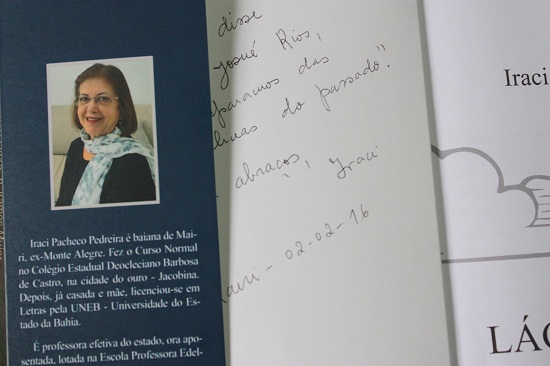 Iraci Pacheco Pedreira é baiana de Mai-
ri, ex-Monte Alegre. Fez o Curso Normal
no Colégio Estadual Deocleciano Barbosa
de Castro, na cidade do ouro - Jacobina.
Depois, já casada e mãe, licenciou-se em
Letras pela UNEB - Universidade do Es-
tado da Bahia.
É professora efetiva do estado, ora apo-
sentada, lotada na Escola Professora Edel-
disse
Josué Rios,
das
do passado."
abraços, Iraci
02-02-16
Iraci
LÁG